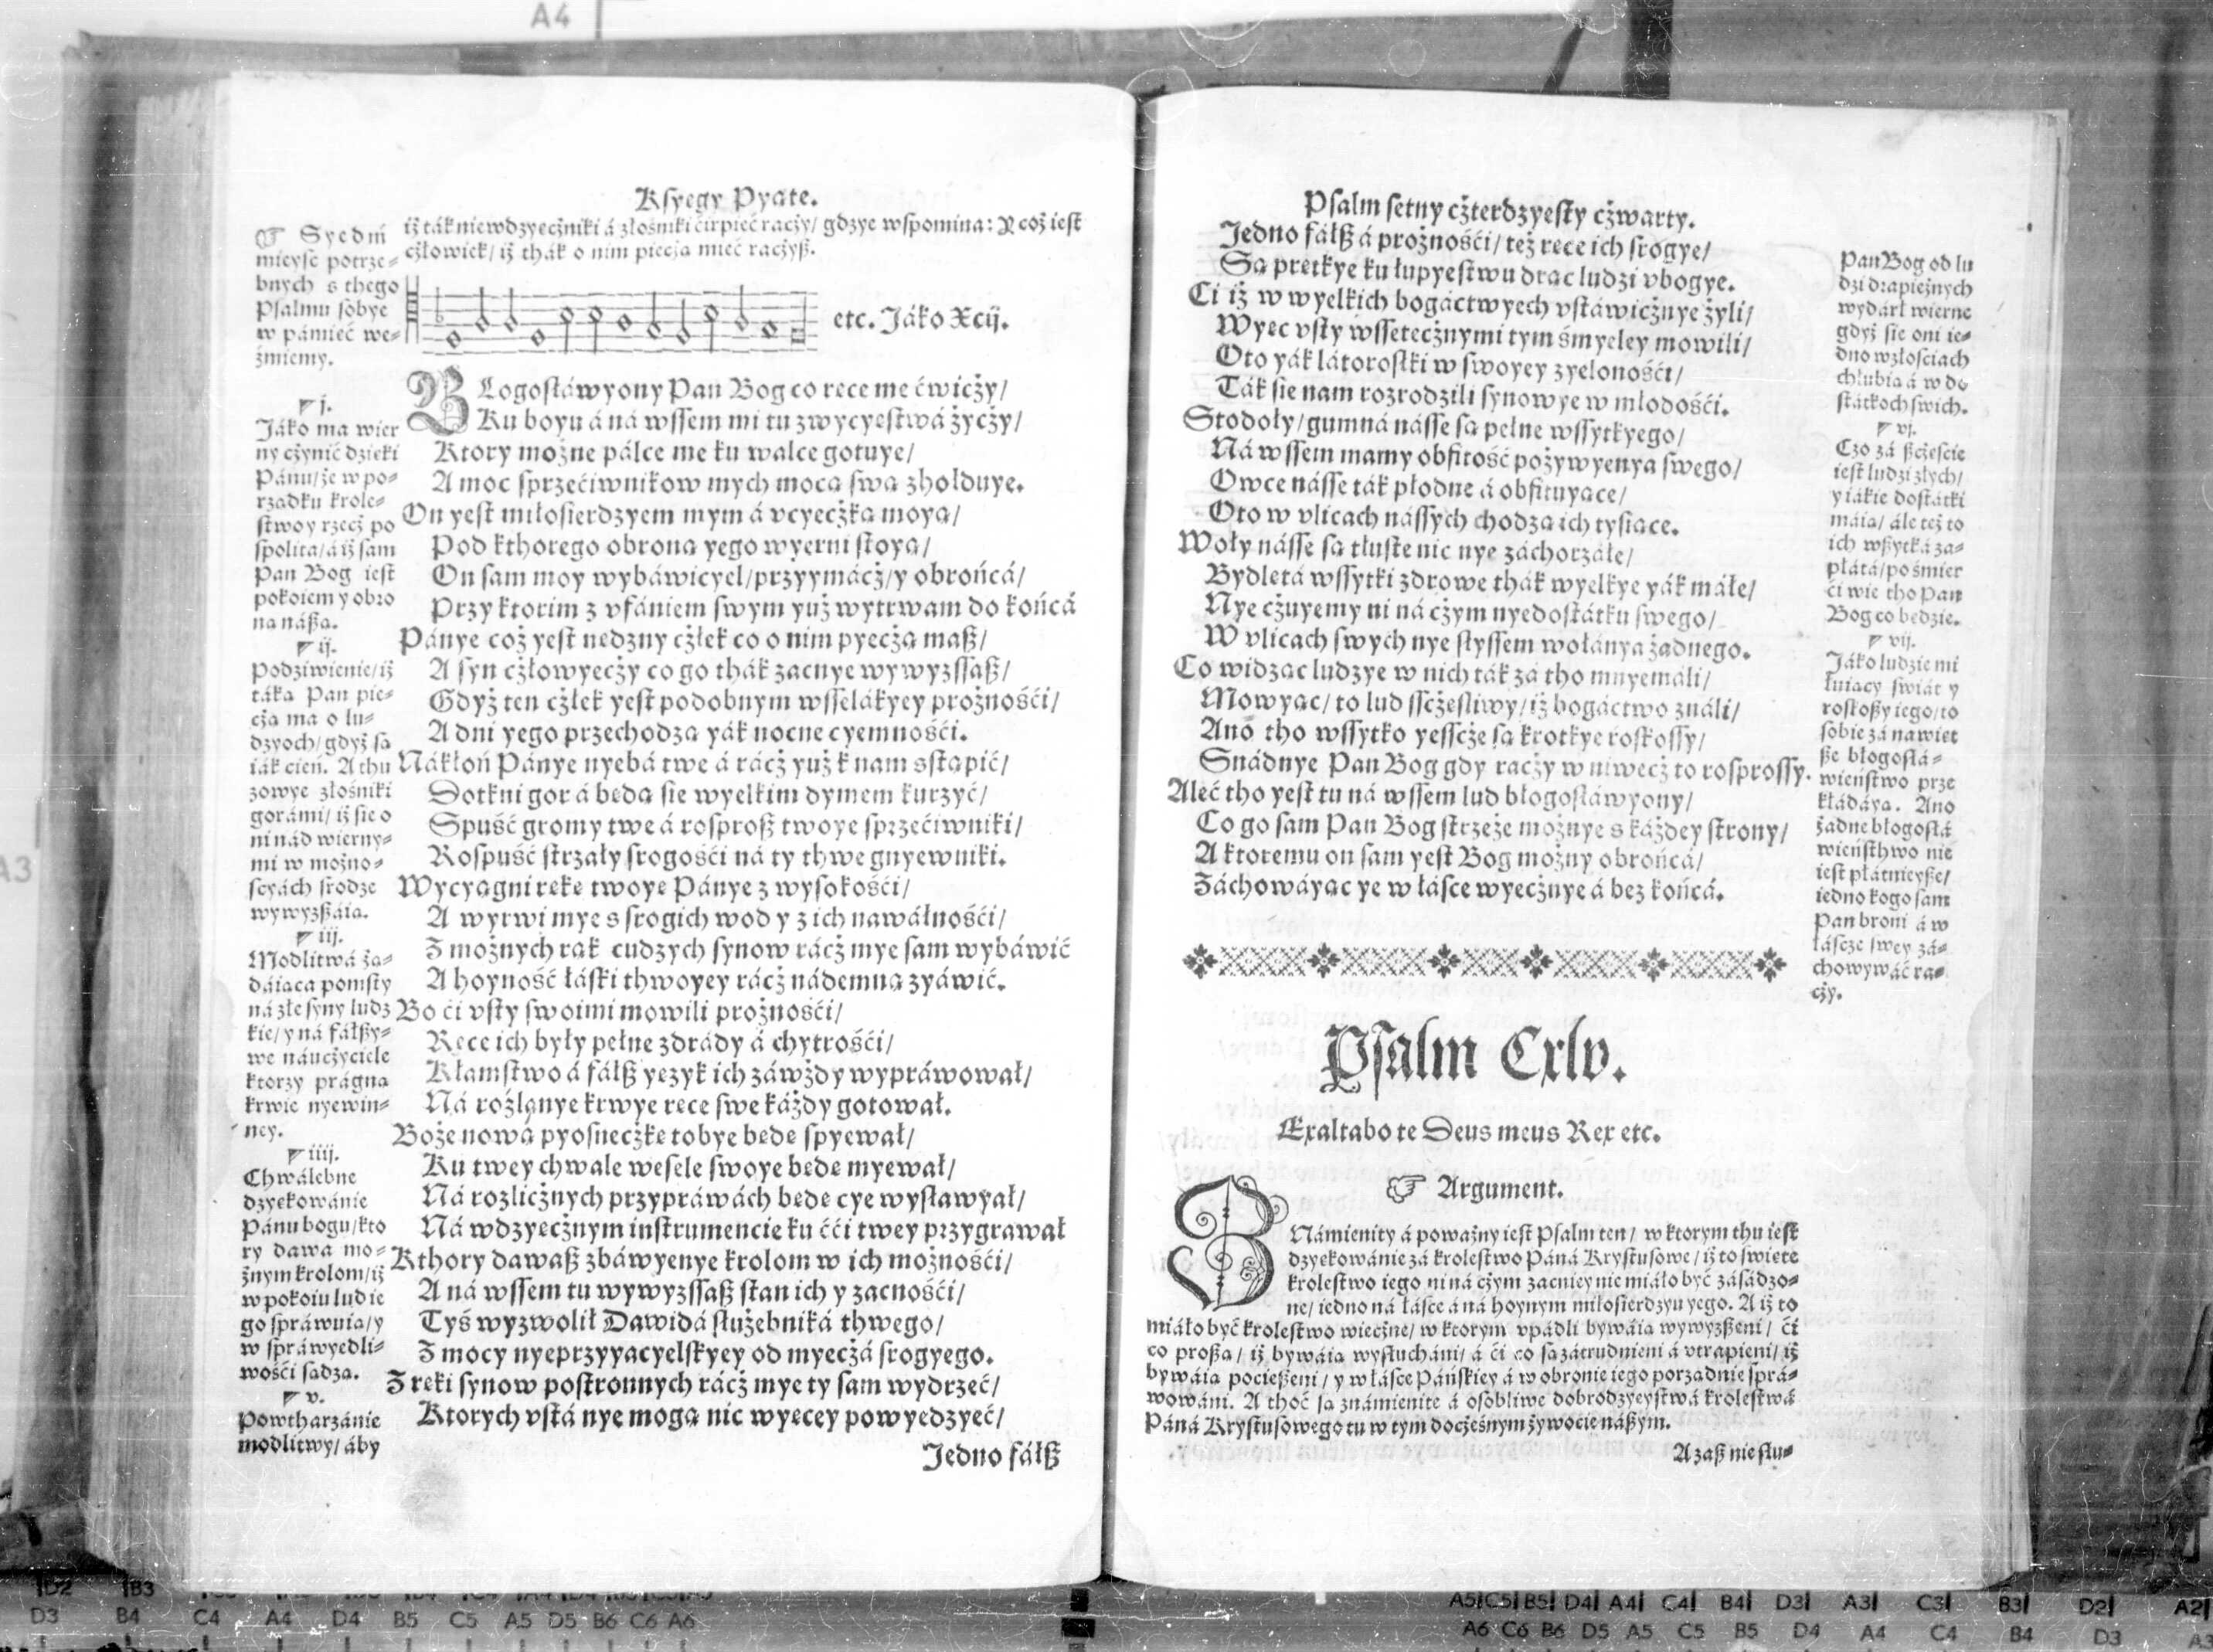 Ksyęgy Pyąte.
iż ták niewdzyęcżniki á złośniki ćirpieć racży/ gdzye wspomina: Y coż iest
cżłowiek/ iż thák o nim piecżą mieć racżyß.
☞ Syedḿ
mieysc potrze=
bnych s thego
Psalmu sobye
w pámięć we=
źmiemy.
etc. Jáko Xcij.
BLogosłáwyony Pan Bog co ręce me ćwicży/
Ku boyu á ná wssem mi tu zwycyęstwá życży/
Ktory możne pálce me ku walce gotuye/
A moc sprzećiwnikow mych mocą swą zhołduye.
On yest miłosierdzyem mym á vcyecżką moyą/
Pod kthorego obroną yego wyerni stoyą/
On sam moy wybáwicyel/przyymácż/y obrońcá/
Przy ktorim z vfániem swym yuż wytrwam do końcá
Pánye coż yest nędzny cżłek co o nim pyecżą maß/
A syn cżłowyecży co go thák zacnye wywyzssaß/
Gdyż ten cżłek yest podobnym wsselákyey prożnośći/
A dni yego przechodzą yák nocne cyemnośći.
Nákłoń Pánye nyebá twe á rácż yuż k nam sstąpić/
Dotkni gor á będą sie wyelkim dymem kurzyć/
Spuść gromy twe á rosproß twoye sprzećiwniki/
Rospuść strzały srogośći ná ty thwe gnyewniki.
Wycyągni rękę twoye Pánye z wysokośći/
A wyrwi mye s srogich wod y z ich nawáłnośći/
Z możnych rąk cudzych synow rácż mye sam wybáwić
A hoyność łáski thwoyey rácż nádemną zyáwić.
Bo ći vsty swoimi mowili prożnośći/
Ręce ich były pełne zdrády á chytrośći/
Kłamstwo á fáłß yęzyk ich záwżdy wypráwował/
Ná rozlanye krwye ręce swe káżdy gotował.
Boże nową pyosneczkę tobye będę spyewał/
Ku twey chwale wesele swoye będę myewał/
Ná rozlicżnych przypráwách będę cye wysławyał/
Ná wdzyęcżnym instrumencie ku ćći twey przygrawał
Kthory dawaß zbáwyenye krolom w ich możnośći/
A ná wssem tu wywyzssaß stan ich y zacnośći/
Tyś wyzwolił Dawidá służebniká thwego/
Z mocy nyeprzyyacyelskyey od myecżá srogyego.
Z ręki synow postronnych rácż mye ty sam wydrzeć/
Ktorych vstá nye mogą nic wyęcey powyedzyeć/
Jedno fáłß
j.
Jáko ma wier
ny cżynić dzięki
Pánu/że w po=
rządku krole=
stwo y rzecż po
spolita/á iż sam
Pan Bog iest
pokoiem y obro
na náßa.
ij.
Podziwienie/iż
táką Pan pie=
cżą ma o lu=
dzyoch/gdyż są
iák cień. A thu
zowye złośniki
gorámi/ iż sie o
ni nád wierny=
mi w możno=
scyách srodze
wywyzßáią.
iij.
Modlitwá żą=
dáiąca pomsty
ná złe syny ludz
kie/y ná fáłßy=
we náucżyciele
ktorzy prágną
krwie nyewin=
ney.
iiij.
Chwálebne
dzyękowánie
Pánu bogu/kto
ry dawa mo=
żnym krolom/iż
w pokoiu lud ie
go spráwuią/y
w spráwyedli=
wośći sądzą.
v.
Powtharzánie
modlitwy/áby
Psalm setny cżterdzyesty cżwarty.
Jedno fáłß á prożnośći/też ręce ich srogye/
Są prętkye ku łupyestwu drąc ludzi vbogye.
Ci iż w wyelkich bogáctwyech vstáwicżnye żyli/
Wyęc vsty wssetecżnymi tym śmyeley mowili/
Oto yák látorostki w swoyey zyelonośći/
Ták sie nam rozrodzili synowye w młodośći.
Stodoły/gumná násse są pełne wssytkyego/
Ná wssem mamy obfitość pożywyenya swego/
Owce násse ták płodne á obfituyące/
Oto w vlicach nássych chodzą ich tysiące.
Woły násse są tłuste nic nye záchorzáłe/
Bydlętá wssytki zdrowe thák wyelkye yák máłe/
Nye cżuyemy ni ná cżym nyedostátku swego/
W vlicach swych nye słyssem wołánya żadnego.
Co widząc ludzye w nich ták zá tho mnyemáli/
Mowyąc/ to lud sscżęsliwy/iż bogáctwo ználi/
Ano tho wssytko yesscże są krotkye roskossy/
Snádnye Pan Bog gdy racży w niwecż to rosprossy.
Aleć tho yest tu ná wssem lud błogosłáwyony/
Co go sam Pan Bog strzeże możnye s káżdey strony/
A ktoremu on sam yest Bog możny obrońcá/
Záchowáyąc ye w łásce wyecżnye á bez końcá.
Pan Bog od lu
dzi drapieżnych
wydárł wierne
gdyż sie oni ie=
dno w złościach
chlubią á w do
státkoch swich.
vj.
Czo zá ßcżęście
iest ludzi złych/
y iákie dostátki
máią/ ále też to
ich wßytká za=
płátá/po śmier
ći wie tho Pan
Bog co będzie.
vij.
Jáko ludzie mi
łuiący swiát y
roskoßy iego/to
sobie zá nawięt
ße błogosłá=
wieństwo prze
kłádáyą. Ano
żadne błogosłá
wieństhwo nie
iest płátnieyße/
iedno kogo sam
Pan broni á w
łáscze swey zá=
chowywáć ra=
cży.
Psalm Cxlv.
Exaltabo te Deus meus Rex etc.
☞ Argument.
ZNámienity á poważny iest Psalm ten/ w ktorym thu iest
dzyękowánie zá krolestwo Páná Krystusowe/ iż to swięte
krolestwo iego ni ná cżym zacniey nie miáło być zásádzo=
ne/ iedno ná łásce á ná hoynym miłosierdzyu yego. A iż to
miáło być krolestwo wiecżne/ w ktorym vpádli bywáią wywyzßeni/ ći
co proßą/ iż bywáią wysłucháni/ á ći co są zátrudnieni á vtrapieni/ iż
bywáią pocießeni/ y w łásce Páńskiey á w obronie iego porządnie sprá=
wowáni. A thoć są známienite á osobliwe dobrodzyeystwá krolestwá
Páná Krystusowego tu w tym docżesnym żywocie náßym.
A zaß nie słu=